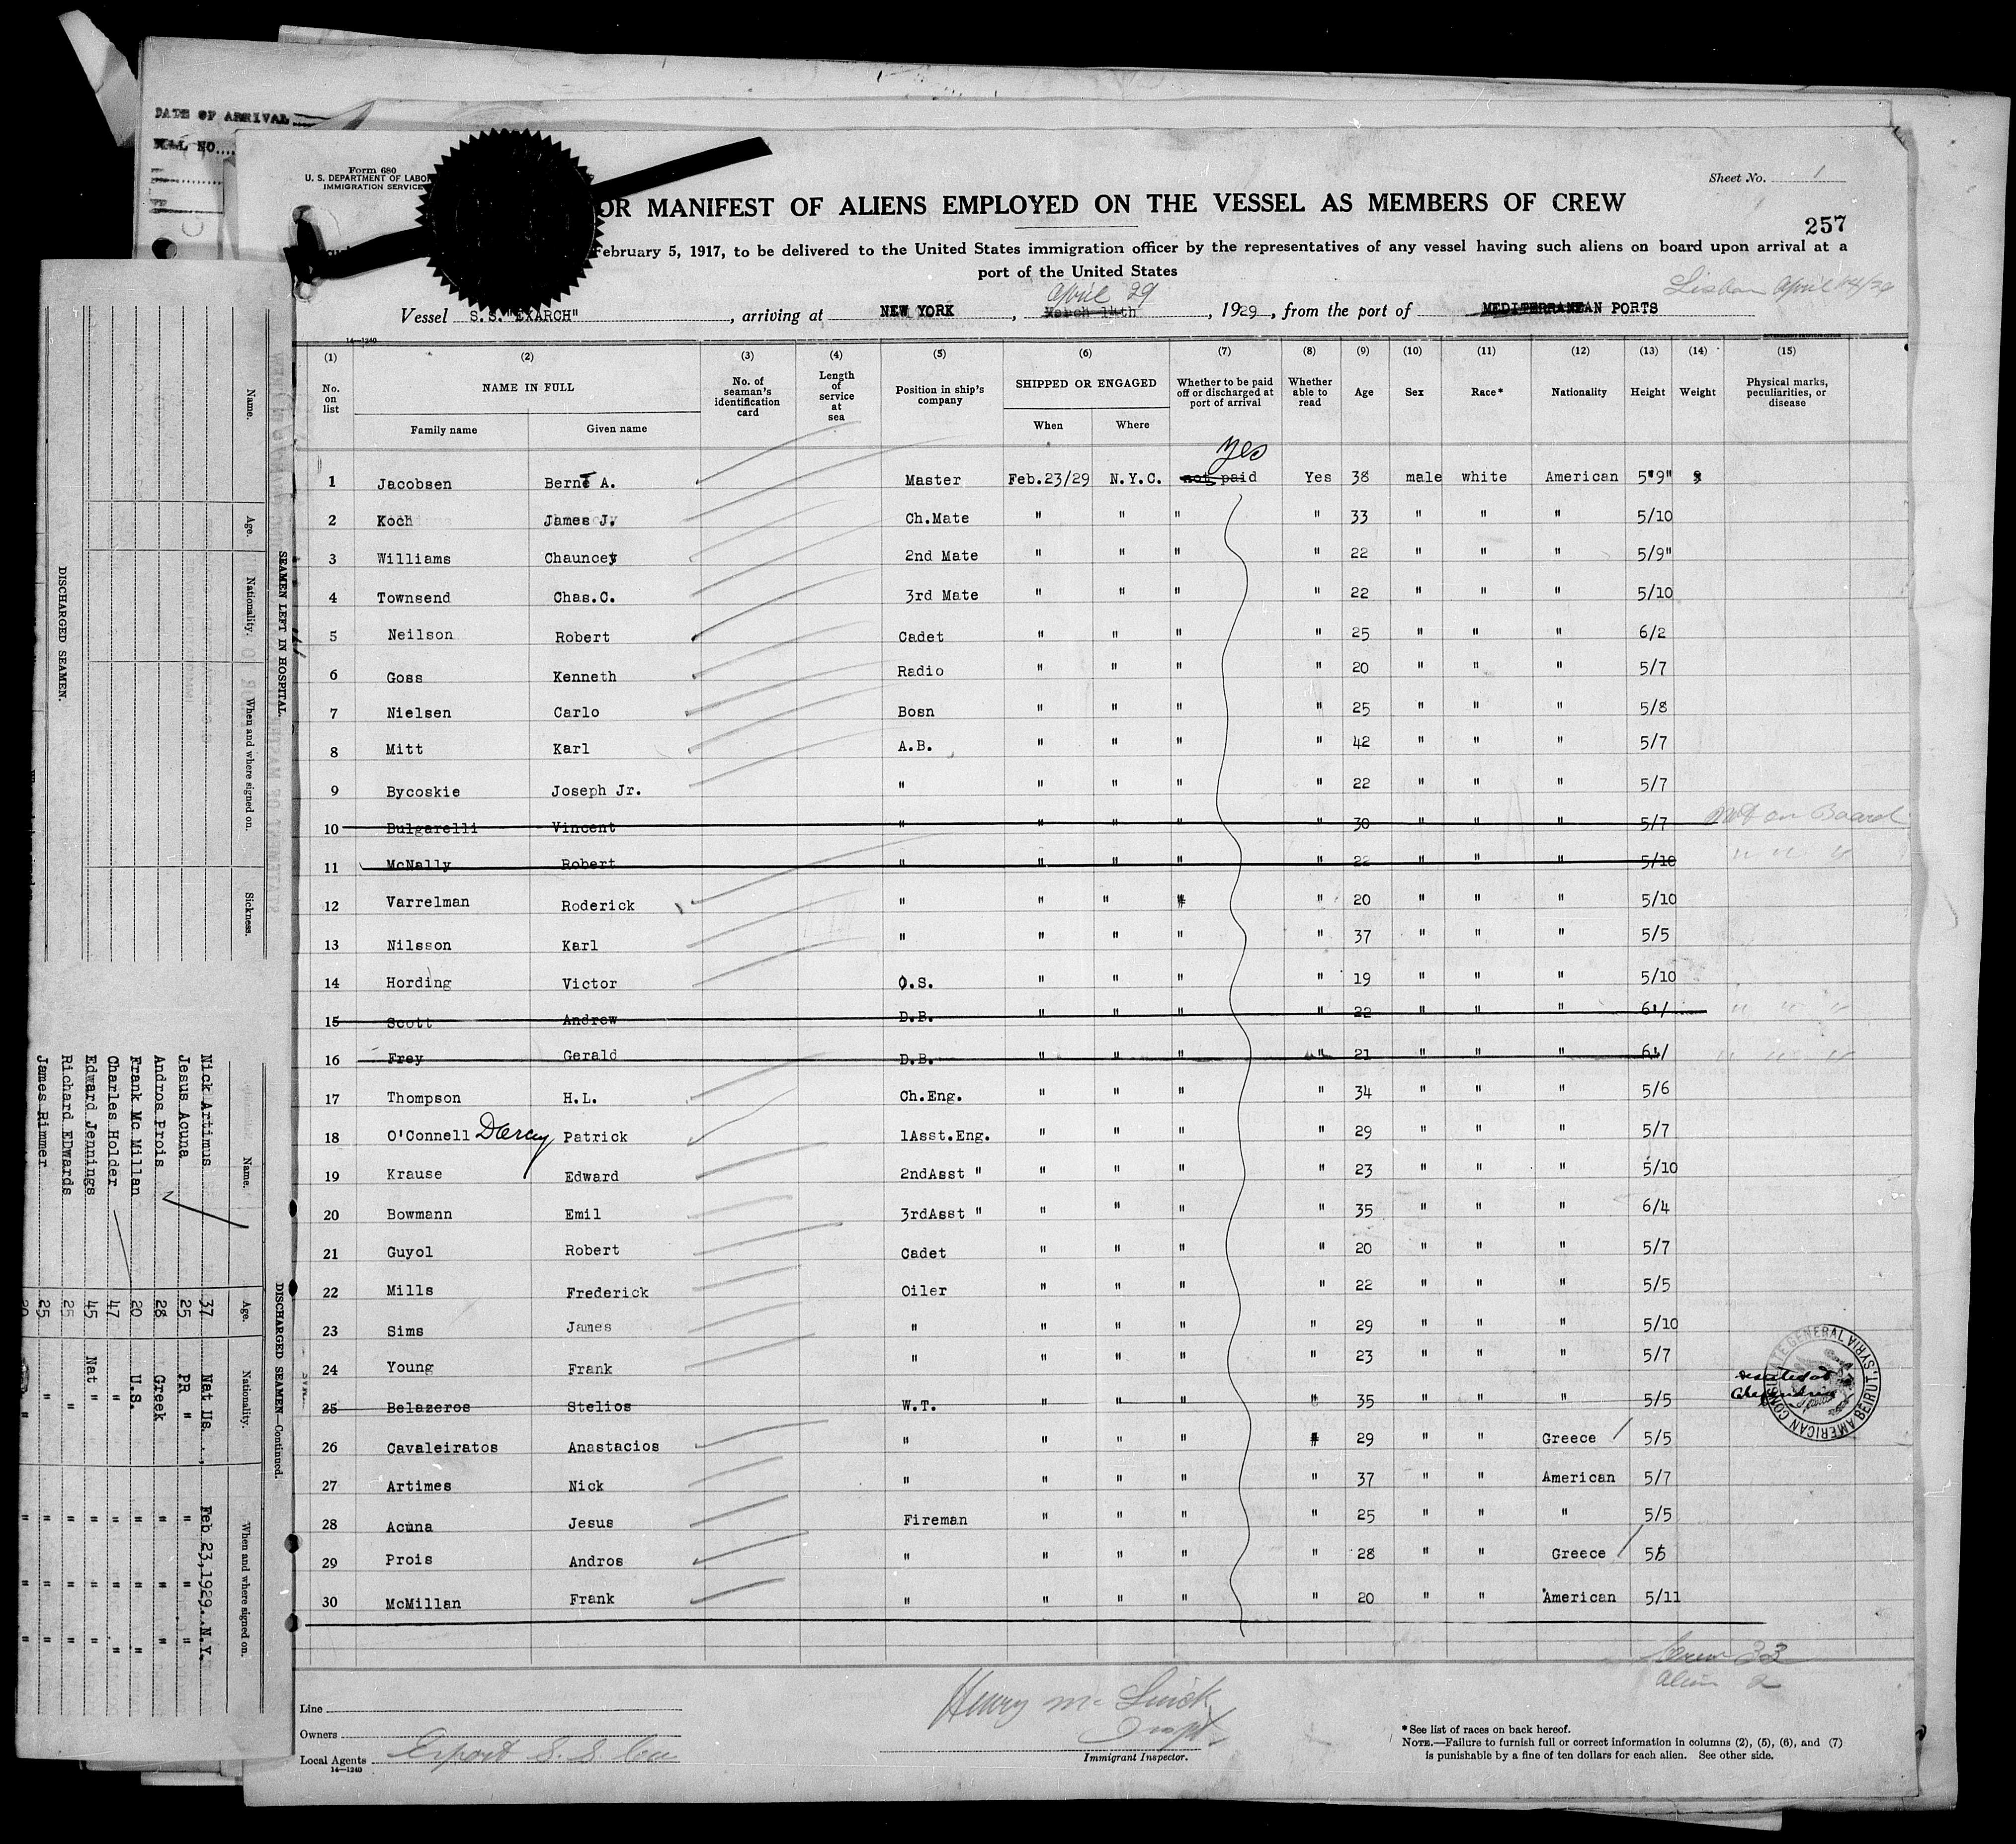 DATE OF ARRIVAL
Form 680
U. S. DEPARTMENT OF LABOR
IMMIGRATION SERVICE
Sheet No. 1
OR MANIFEST OF ALIENS EMPLOYED ON THE VESSEL AS MEMBERS OF CREW
257
February 5, 1917, to be delivered to the United States immigration officer by the representatives of any vessel having such aliens on board upon arrival at a
port of the United States
April 29 Lisbon April 14/29
Vessel S.S."EXARCH", arriving at NEW YORK, March 14th, 1929, from the port of MEDITERRANEAN PORTS
14—1240
(1) (2) (3) (4) (5) (6) (7) (8) (9) (10) (11) (12) (13) (14) (15)
No. on list NAME IN FULL No. of seaman's identification card Length of service at sea Position in ship's company SHIPPED OR ENGAGED Whether to be paid off or discharged at port of arrival Whether able to read Age Sex Race* Nationality Height Weight Physical marks, peculiarities, or disease
Family name Given name When Where
yes
1 Jacobsen Bernt A. Master Feb.23/29 N.Y.C. not paid Yes 38 male white American 5"9"
2 Koch James J. Ch.Mate " " " " 33 " " " 5/10
3 Williams Chauncey 2nd Mate " " " " 22 " " " 5/9"
4 Townsend Chas.C. 3rd Mate " " " " 22 " " " 5/10
5 Neilson Robert Cadet " " " " 25 " " " 6/2
6 Goss Kenneth Radio " " " " 20 " " " 5/7
7 Nielsen Carlo Bosn " " " " 25 " " " 5/8
8 Mitt Karl A.B. " " " " 42 " " " 5/7
9 Bycoskie Joseph Jr. " " " " " 22 " " " 5/7
10 Bulgarelli Vincent " " " " " 30 " " " 5/7 Not on Board
11 McNally Robert " " " " " 22 " " " 5/10 " " "
12 Varrelman Roderick " " " " " 20 " " " 5/10
13 Nilsson Karl " " " " " 37 " " " 5/5
14 Hording Victor O.S. " " " " 19 " " " 5/10
15 Scott Andrew D.B. " " " " 22 " " " 6'/ " " "
16 Frey Gerald D.B. " " " " 21 " " " 6'/ " " "
17 Thompson H.L. Ch.Eng. " " " " 34 " " " 5/6
18 O'Connell Darcy Patrick 1Asst.Eng. " " " " 29 " " " 5/7
19 Krause Edward 2ndAsst " " " " " 23 " " " 5/10
20 Bowmann Emil 3rdAsst " " " " " 35 " " " 6/4
21 Guyol Robert Cadet " " " " 20 " " " 5/7
22 Mills Frederick Oiler " " " " 22 " " " 5/5
23 Sims James " " " " " 29 " " " 5/10
24 Young Frank " " " " " 23 " " " 5/7
25 Belazeros Stelios W.T. " " " " 35 " " " 5/5
26 Cavaleiratos Anastacios " " " " " 29 " " Greece 5/5
27 Artimes Nick " " " " " 37 " " American 5/7
28 Acuna Jesus Fireman " " " " 25 " " " 5/5
29 Prois Andros " " " " " 28 " " Greece 5/5
30 McMillan Frank " " " " " 20 " " American 5/11
AMERICAN CONSULATE GENERAL BEIRUT, SYRIA
Crew 33
Alien 2
Line
Owners
Local Agents Export S.S. Co
14—1240
Inspt.
Immigrant Inspector.
*See list of races on back hereof.
NOTE.—Failure to furnish full or correct information in columns (2), (5), (6), and (7)
is punishable by a fine of ten dollars for each alien. See other side.
SEAMEN LEFT IN HOSPITAL.
Name. Age. Nationality. When and where signed on. Sickness.
DISCHARGED SEAMEN.
DISCHARGED SEAMEN—Continued.
Name. Age. Nationality. When and where signed on.
Nick Artimus 37 Nat Us. Feb 23,1929. N.Y.
Jesus Acuna 25 PR " " " "
Andros Prois 28 Greek " " "
Frank Mc Millan 20 U.S. " " "
Charles Holder 47 " " " "
Edward Jennings 45 Nat " " " "
Richard Edwards 25 " " " "
James Rimmer 25 " " " "